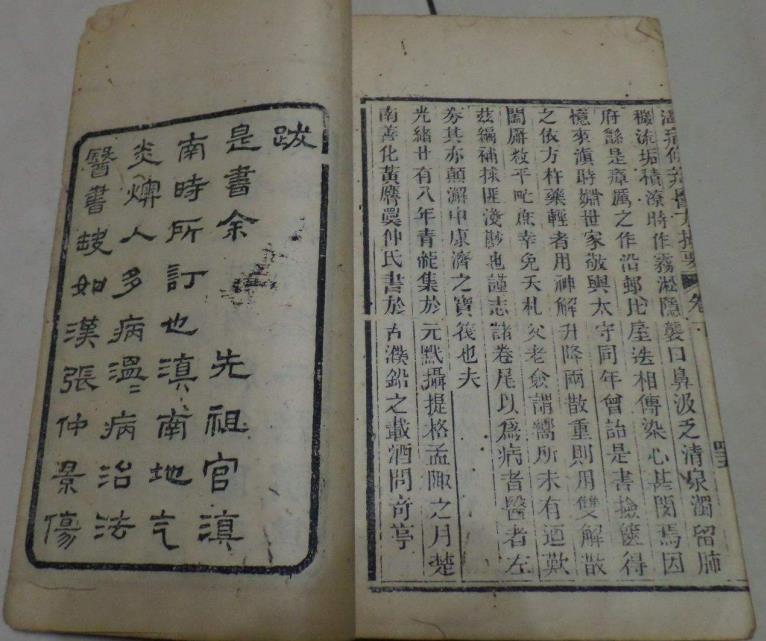 穢流垢積潦時作霧淞隱襲口鼻汲乏清泉濁留肺
府繇是瘴厲之作沿鄉比屋迭相傳染心甚閔焉因
憶來滇時世家敬輿太守同年曾詒是書撿篋得
之依方杵藥輕者用神解升降兩散重則用雙解散
閭廛救平甿庶幸免夭札父老僉謂嚮所未有迺歎
茲編補採匪淺尠也謹志諸卷尾以爲病者醫者左
劵其亦顛澥中康濟之寶筏也夫
光緒廿有八年青龍集於元黓攝提格孟陬之月楚
南善化黃膺仲氏書於古濮鉛之載酒問奇亭
跋
是書余 先祖官滇
南時所訂也滇南地气
炎燠人多病溫〻病治法
醫書缺如漢張仲景傷